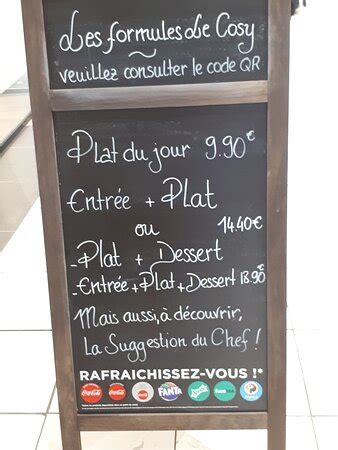 Les formules Le Cosy
veuillez consulter le code QR
Plat du jour 9.90€
Entrée + Plat
ou 14.40€
- Plat + Dessert
- Entrée + Plat + Dessert 18.90€
Mais aussi, à découvrir,
La Suggestion du Chef !
RAFRAICHISSEZ-VOUS !*
Coca-Cola Coca-Cola FANTA